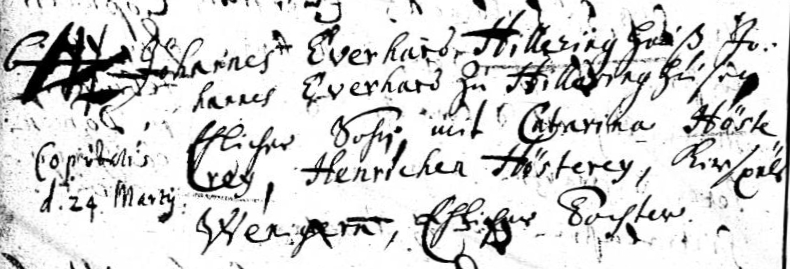 Johannes Everhard Hillringhauß Jo:
hannes Everhard zu Hillringhausen
Ehlicher Sohn, mit Catarina Höste
rey, Henrichen Hösterey, Kirspels
Wengern, Ehlicher Tochter.
Copulatis
d. 24 Martij.